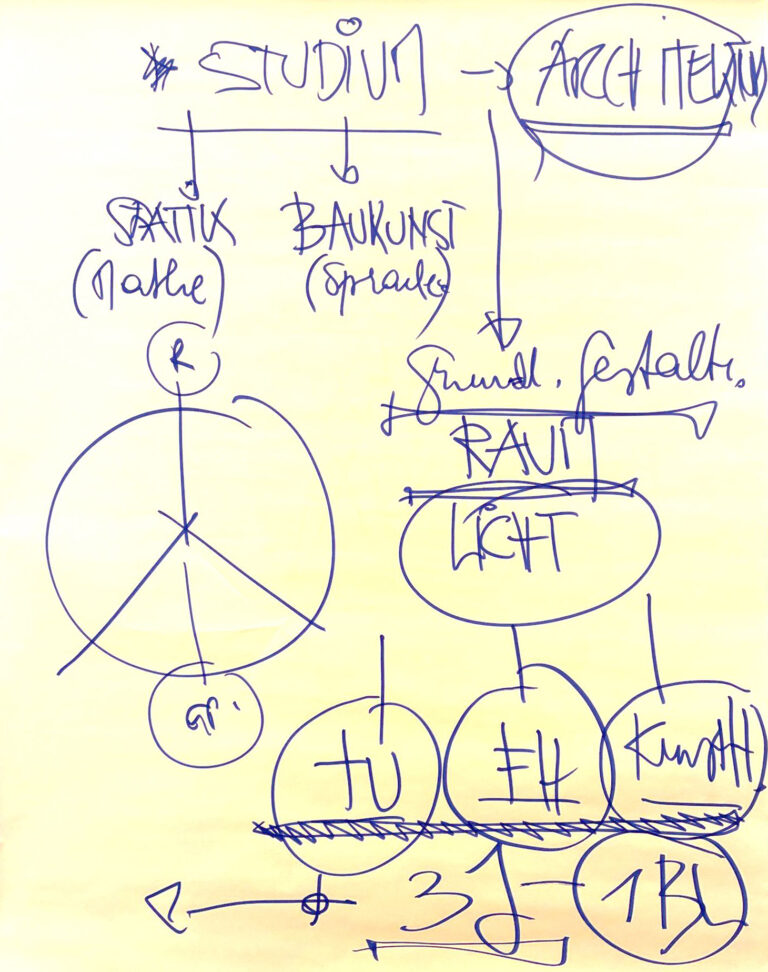 STUDIUM → ARCHITEKTUR
STATIK BAUKUNST
(Mathe) (Sprache)
R
Grundl. Gestalt.
RAUM
LICHT
Gr.
TU FH KunstH
3J – 1BL